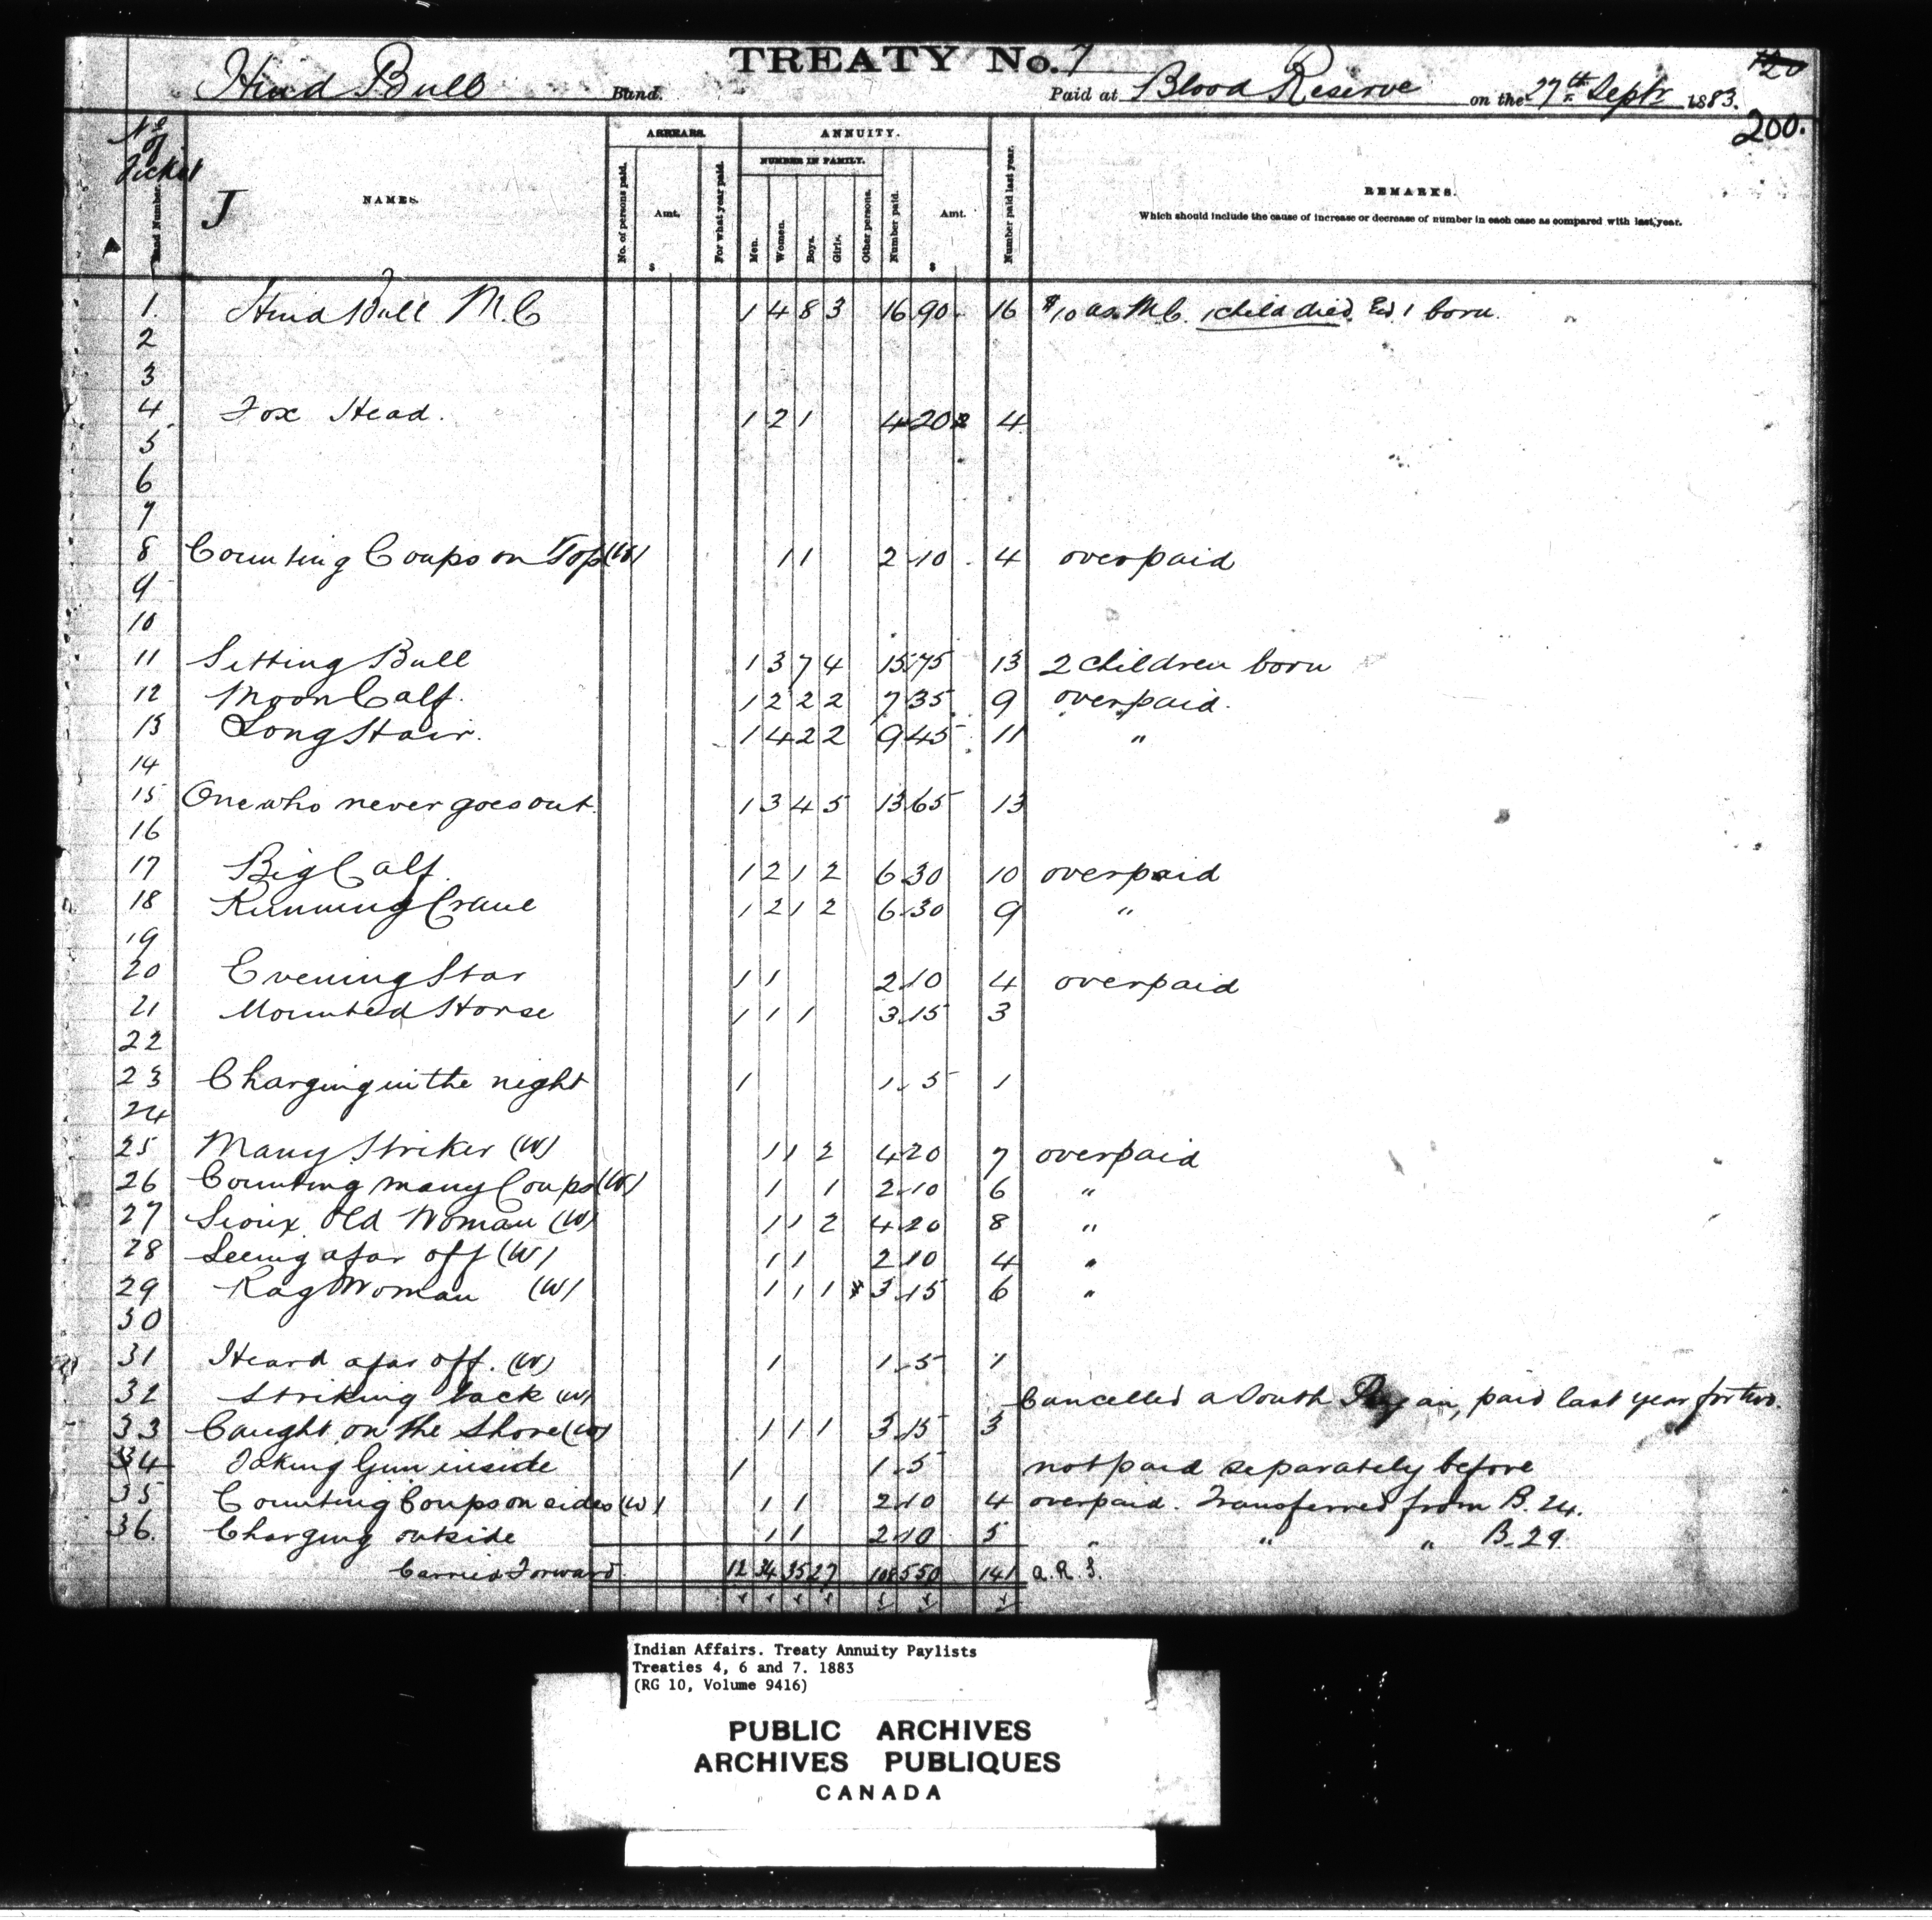 TREATY No. 7
120
Hind Bull Band. Paid at Blood Reserve on the 27th Septr 1883.
200.
No of Ticket
Band Number.
J
NAMES.
ARREARS.
No. of persons paid.
Amt.
$
For what year paid.
ANNUITY.
NUMBER IN FAMILY.
Men.
Women.
Boys.
Girls.
Other persons.
Number paid.
Amt.
$
Number paid last year.
REMARKS.
Which should include the cause of increase or decrease of number in each case as compared with last year.
1. Hind Bull M.C 1 4 8 3 16 90 16 $10 as M.C. 1 child died & 1 born.
2
3
4 Fox Head. 1 2 1 4 20 4
5
6
7
8 Counting Coups on Top (W) 1 1 2 10 4 overpaid
9
10
11 Sitting Bull 1 3 7 4 15 75 13 2 children born
12 Moon Calf. 1 2 2 2 7 35 9 overpaid.
13 Long Hair. 1 4 2 2 9 45 11 "
14
15 One who never goes out. 1 3 4 5 13 65 13
16
17 Big Calf. 1 2 1 2 6 30 10 overpaid
18 Running Crane 1 2 1 2 6 30 9 "
19
20 Evening Star 1 1 2 10 4 overpaid
21 Mounted Horse 1 1 1 3 15 3
22
23 Charging in the night 1 1 5 1
24
25 Many Striker (W) 1 1 2 4 20 7 overpaid
26 Counting many Coups (W) 1 1 2 10 6 "
27 Sioux Old Woman (W) 1 1 2 4 20 8 "
28 Seeing afar off (W) 1 1 2 10 4 "
29 Rag Woman (W) 1 1 1 3 15 6 "
30
31 Heard afar off. (W) 1 1 5 1
32 Striking back (W) Cancelled a South Peigan, paid last year for two.
33 Caught on the Shore (W) 1 1 1 3 15 3
34 Taking Gun inside 1 1 5 not paid separately before
35 Counting Coups on sides (W) 1 1 2 10 4 overpaid. Transferred from B. 24.
36. Charging outside 1 1 2 10 5 " " " B. 29.
Carried Forward 12 34 35 27 108 550 141 a.R.S.
Indian Affairs. Treaty Annuity Paylists
Treaties 4, 6 and 7. 1883
(RG 10, Volume 9416)
PUBLIC ARCHIVES
ARCHIVES PUBLIQUES
CANADA